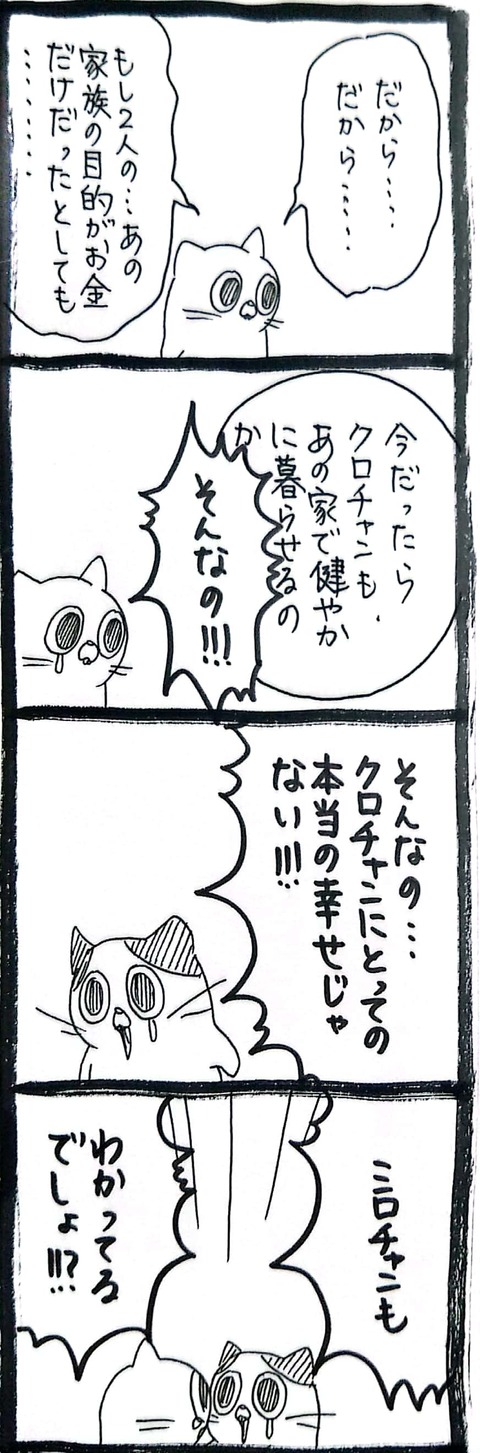 だから…‥
だから……
もし2人の…あの
家族の目的がお金
だけだったとしても
………
今だったら
クロチャンも、
あの家で健やか
に暮らせるの
か
そんなの!!!
そんなの…
クロチャンにとっての
本当の幸せじゃ
ない!!!
ミロチャンも
わかってる
でしょ!!?